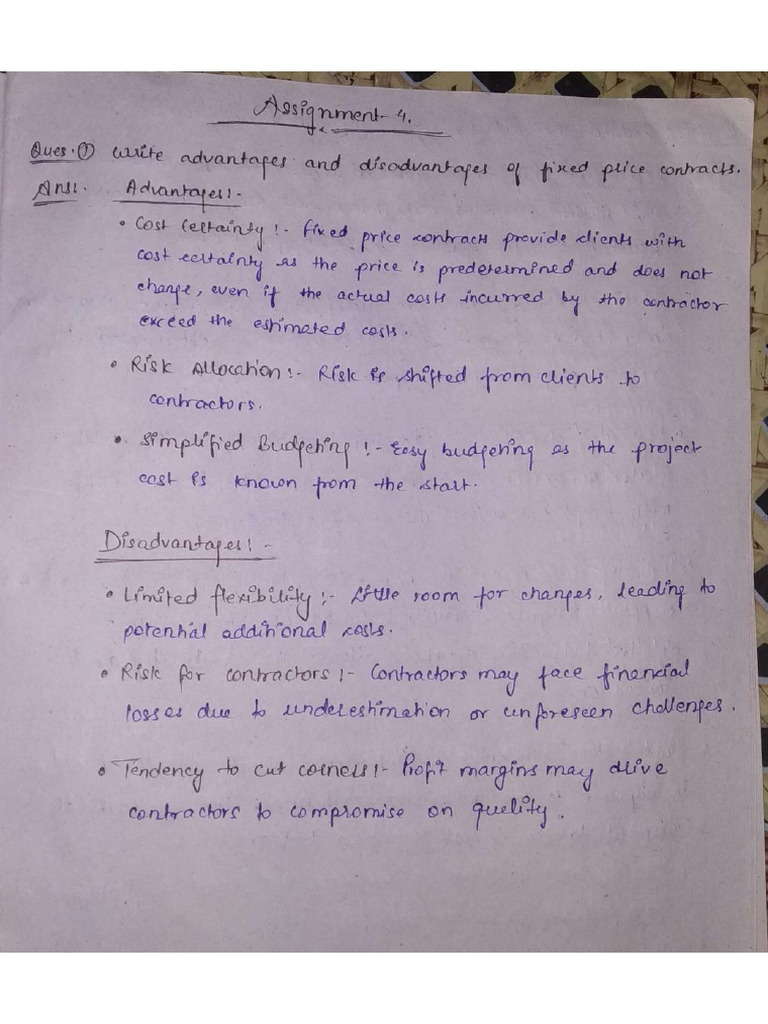 Assignment - 4.
Ques. ① Write advantages and disadvantages of fixed price contracts.
Ans:. Advantages:-
• Cost Certainty :- fixed price contracts provide clients with
cost certainty as the price is predetermined and does not
change, even if the actual costs incurred by the contractor
exceed the estimated costs.
• Risk Allocation:- Risk is shifted from clients to
contractors.
• Simplified Budgeting :- Easy budgeting as the project
cost is known from the start.
Disadvantages:-
• Limited flexibility :- Little room for changes, leading to
potential additional costs.
• Risk for contractors :- Contractors may face financial
losses due to underestimation or unforeseen challenges.
• Tendency to cut corners:- Profit margins may drive
contractors to compromise on quality.